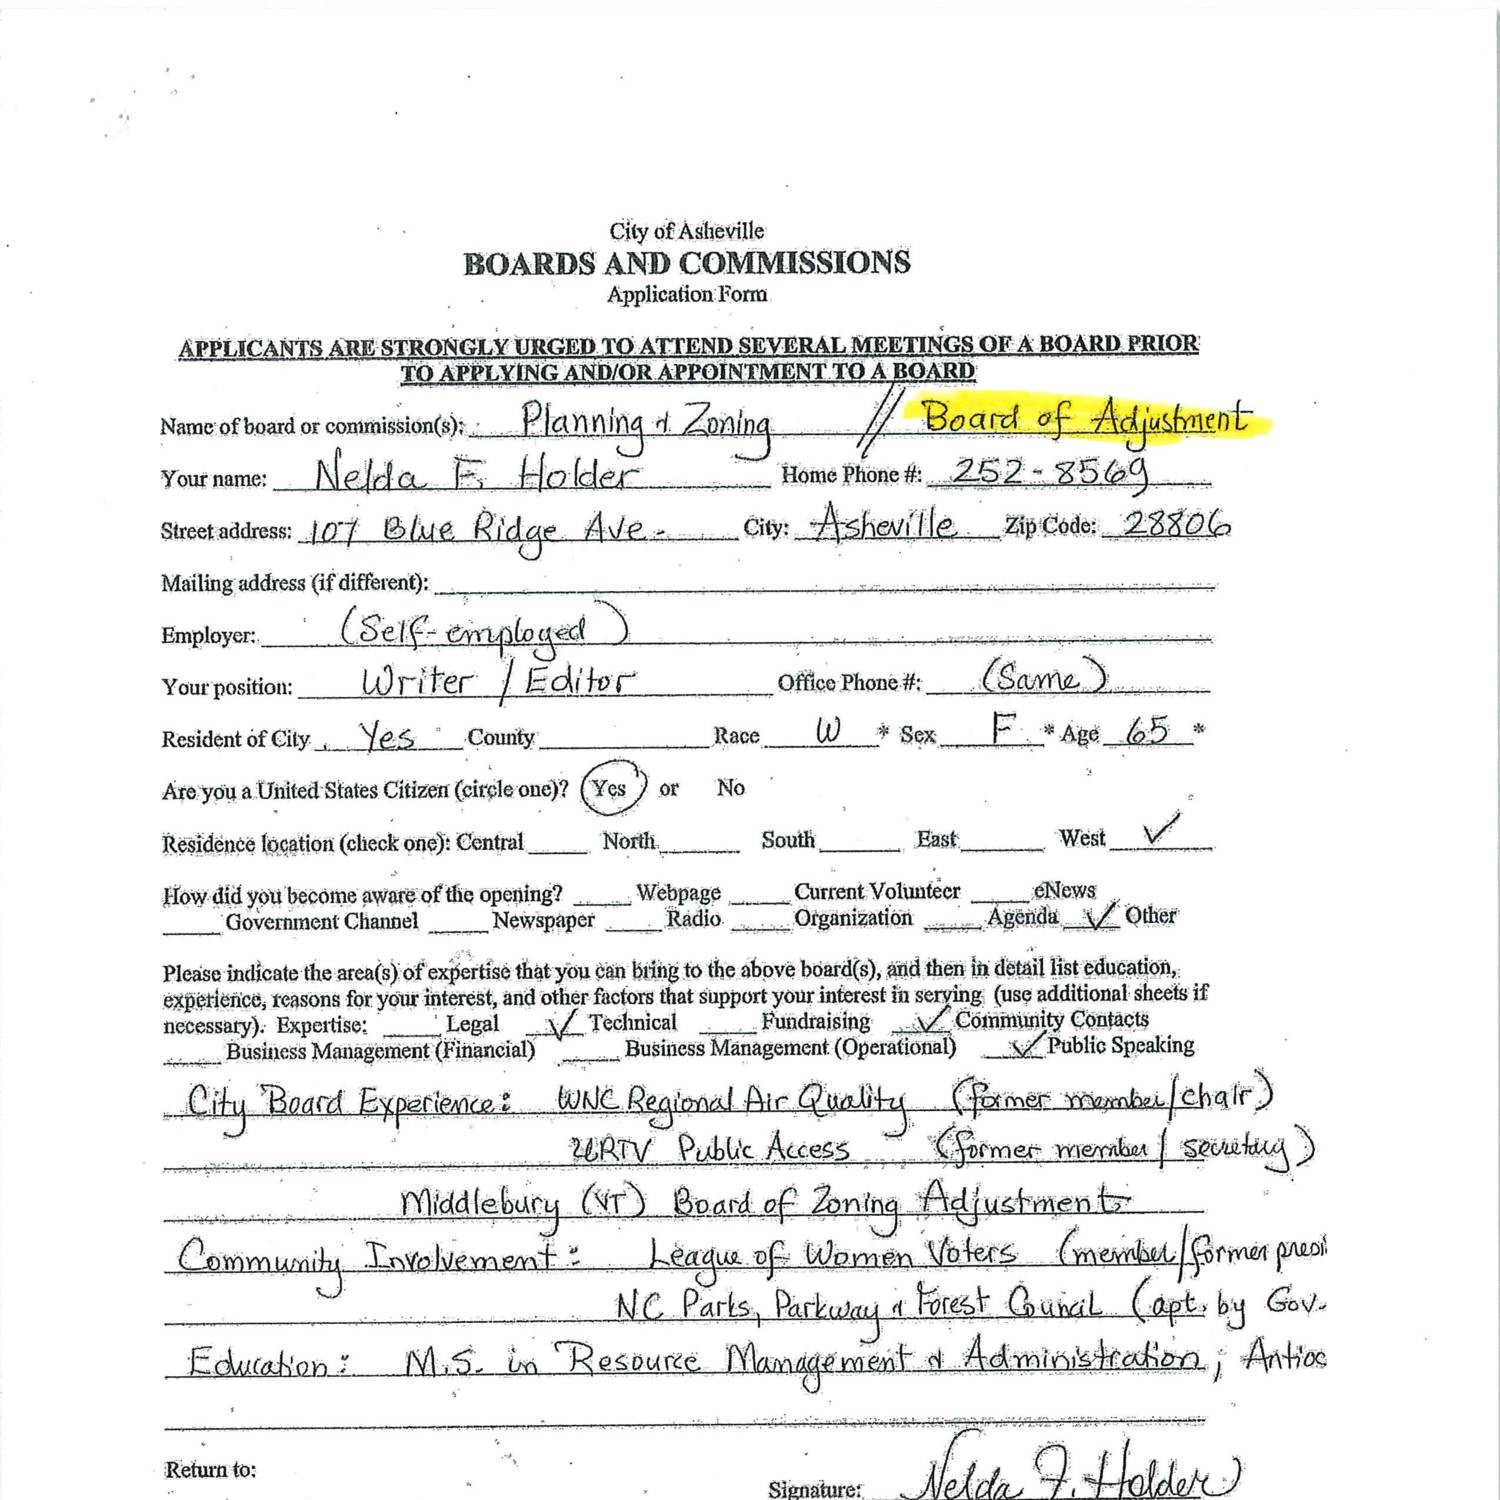 City of Asheville
BOARDS AND COMMISSIONS
Application Form
APPLICANTS ARE STRONGLY URGED TO ATTEND SEVERAL MEETINGS OF A BOARD PRIOR
TO APPLYING AND/OR APPOINTMENT TO A BOARD
Name of board or commission(s): Planning & Zoning // Board of Adjustment
Your name: Nelda F. Holder Home Phone #: 252-8569
Street address: 107 Blue Ridge Ave. City: Asheville Zip Code: 28806
Mailing address (if different):
Employer: (Self-employed)
Your position: Writer / Editor Office Phone #: (Same)
Resident of City Yes County Race W * Sex F * Age 65 *
Are you a United States Citizen (circle one)? Yes or No
Residence location (check one): Central North South East West ✓
How did you become aware of the opening? Webpage Current Volunteer eNews
Government Channel Newspaper Radio Organization Agenda ✓ Other
Please indicate the area(s) of expertise that you can bring to the above board(s), and then in detail list education,
experience, reasons for your interest, and other factors that support your interest in serving (use additional sheets if
necessary). Expertise: Legal ✓ Technical Fundraising ✓ Community Contacts
Business Management (Financial) Business Management (Operational) ✓ Public Speaking
City Board Experience: WNC Regional Air Quality (former member/chair)
URTV Public Access (former member / secretary)
Middlebury (VT) Board of Zoning Adjustment
Community Involvement: League of Women Voters (member/former presi
NC Parks, Parkway & Forest Council (apt. by Gov.
Education: M.S. in Resource Management & Administration; Antioc
Return to:
Signature: Nelda F. Holder